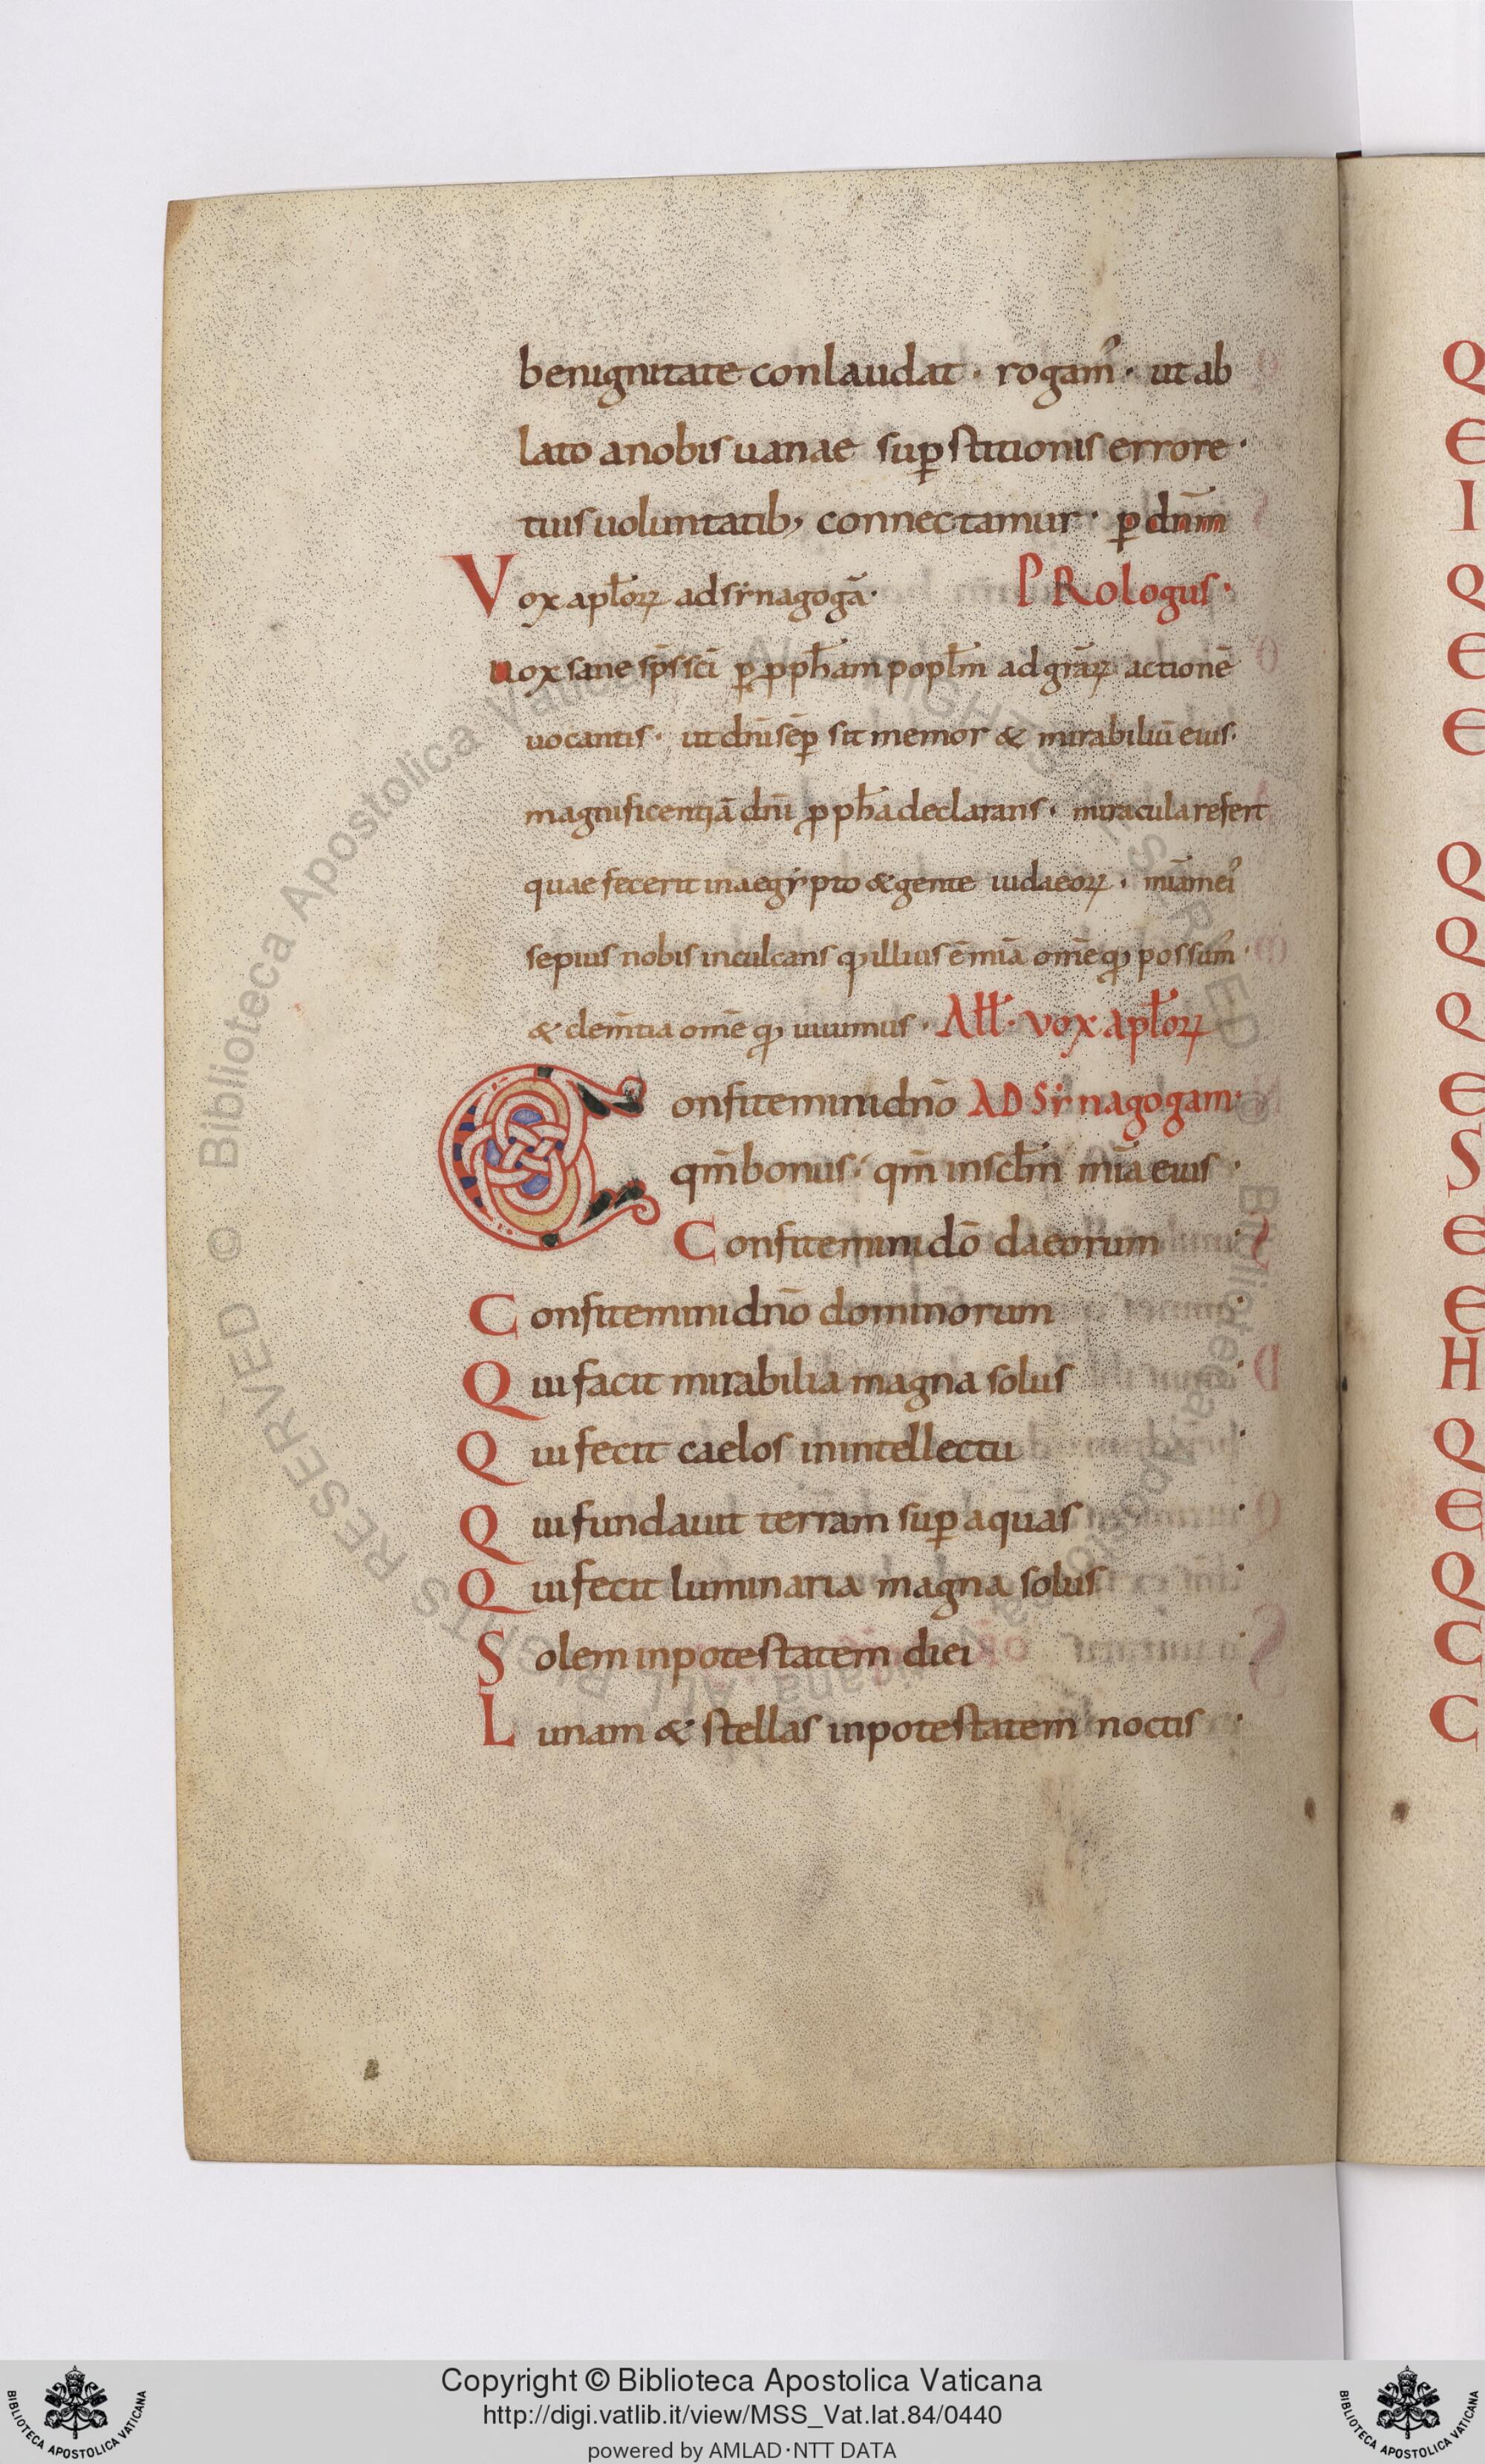 benignitate conlaudat · rogam᾽ · ut ab
lato a nobis uanae sup̄stitionis errore ·
tuis uoluntatib; connectamur · p̄ dnm̄
Vox apl̄oꝝ ad sẏnagogā · PRologus ·
uox sane sp̄s sc̄i p̄ ꝓph̄am popl̄m ad gr̄aꝝ actionē
uocantis · ut dn̄i sēp̄ sit memor & mirabiliū eius ·
magnificentiā dn̄i ꝓph̄a declarans · miracula refert
quae fecerit in aegẏpto & gente iudaeoꝝ · mīam ei᾽
sepius nobis inculcans q; illius ē mīa om̄e q; possum᾽ ·
& clem̄tia om̄e q; uiuimus · All̄ · vox apl̄oꝝ
Confitemini dn̄o AD Sẏnagogam ·
qm̄ bonus · qm̄ in scl̄m mīa eius ·
Confitemini dō daeorum ·
Confitemini dn̄o dominorum ·
Qui facit mirabilia magna solus ·
Qui fecit caelos in intellectu ·
Qui fundauit terram sup̄ aquas ·
Qui fecit luminaria magna solus ·
Solem in potestatem diei ·
Lunam & stellas in potestatem noctis ·
Q
E
I
Q
E
E
Q
Q
Q
E
S
E
E
H
Q
E
Q
C
C
© Biblioteca Apostolica Vaticana ALL RIGHTS RESERVED
Copyright © Biblioteca Apostolica Vaticana
http://digi.vatlib.it/view/MSS_Vat.lat.84/0440
powered by AMLAD·NTT DATA
BIBLIOTECA APOSTOLICA VATICANA
BIBLIOTECA APOSTOLICA VATICANA